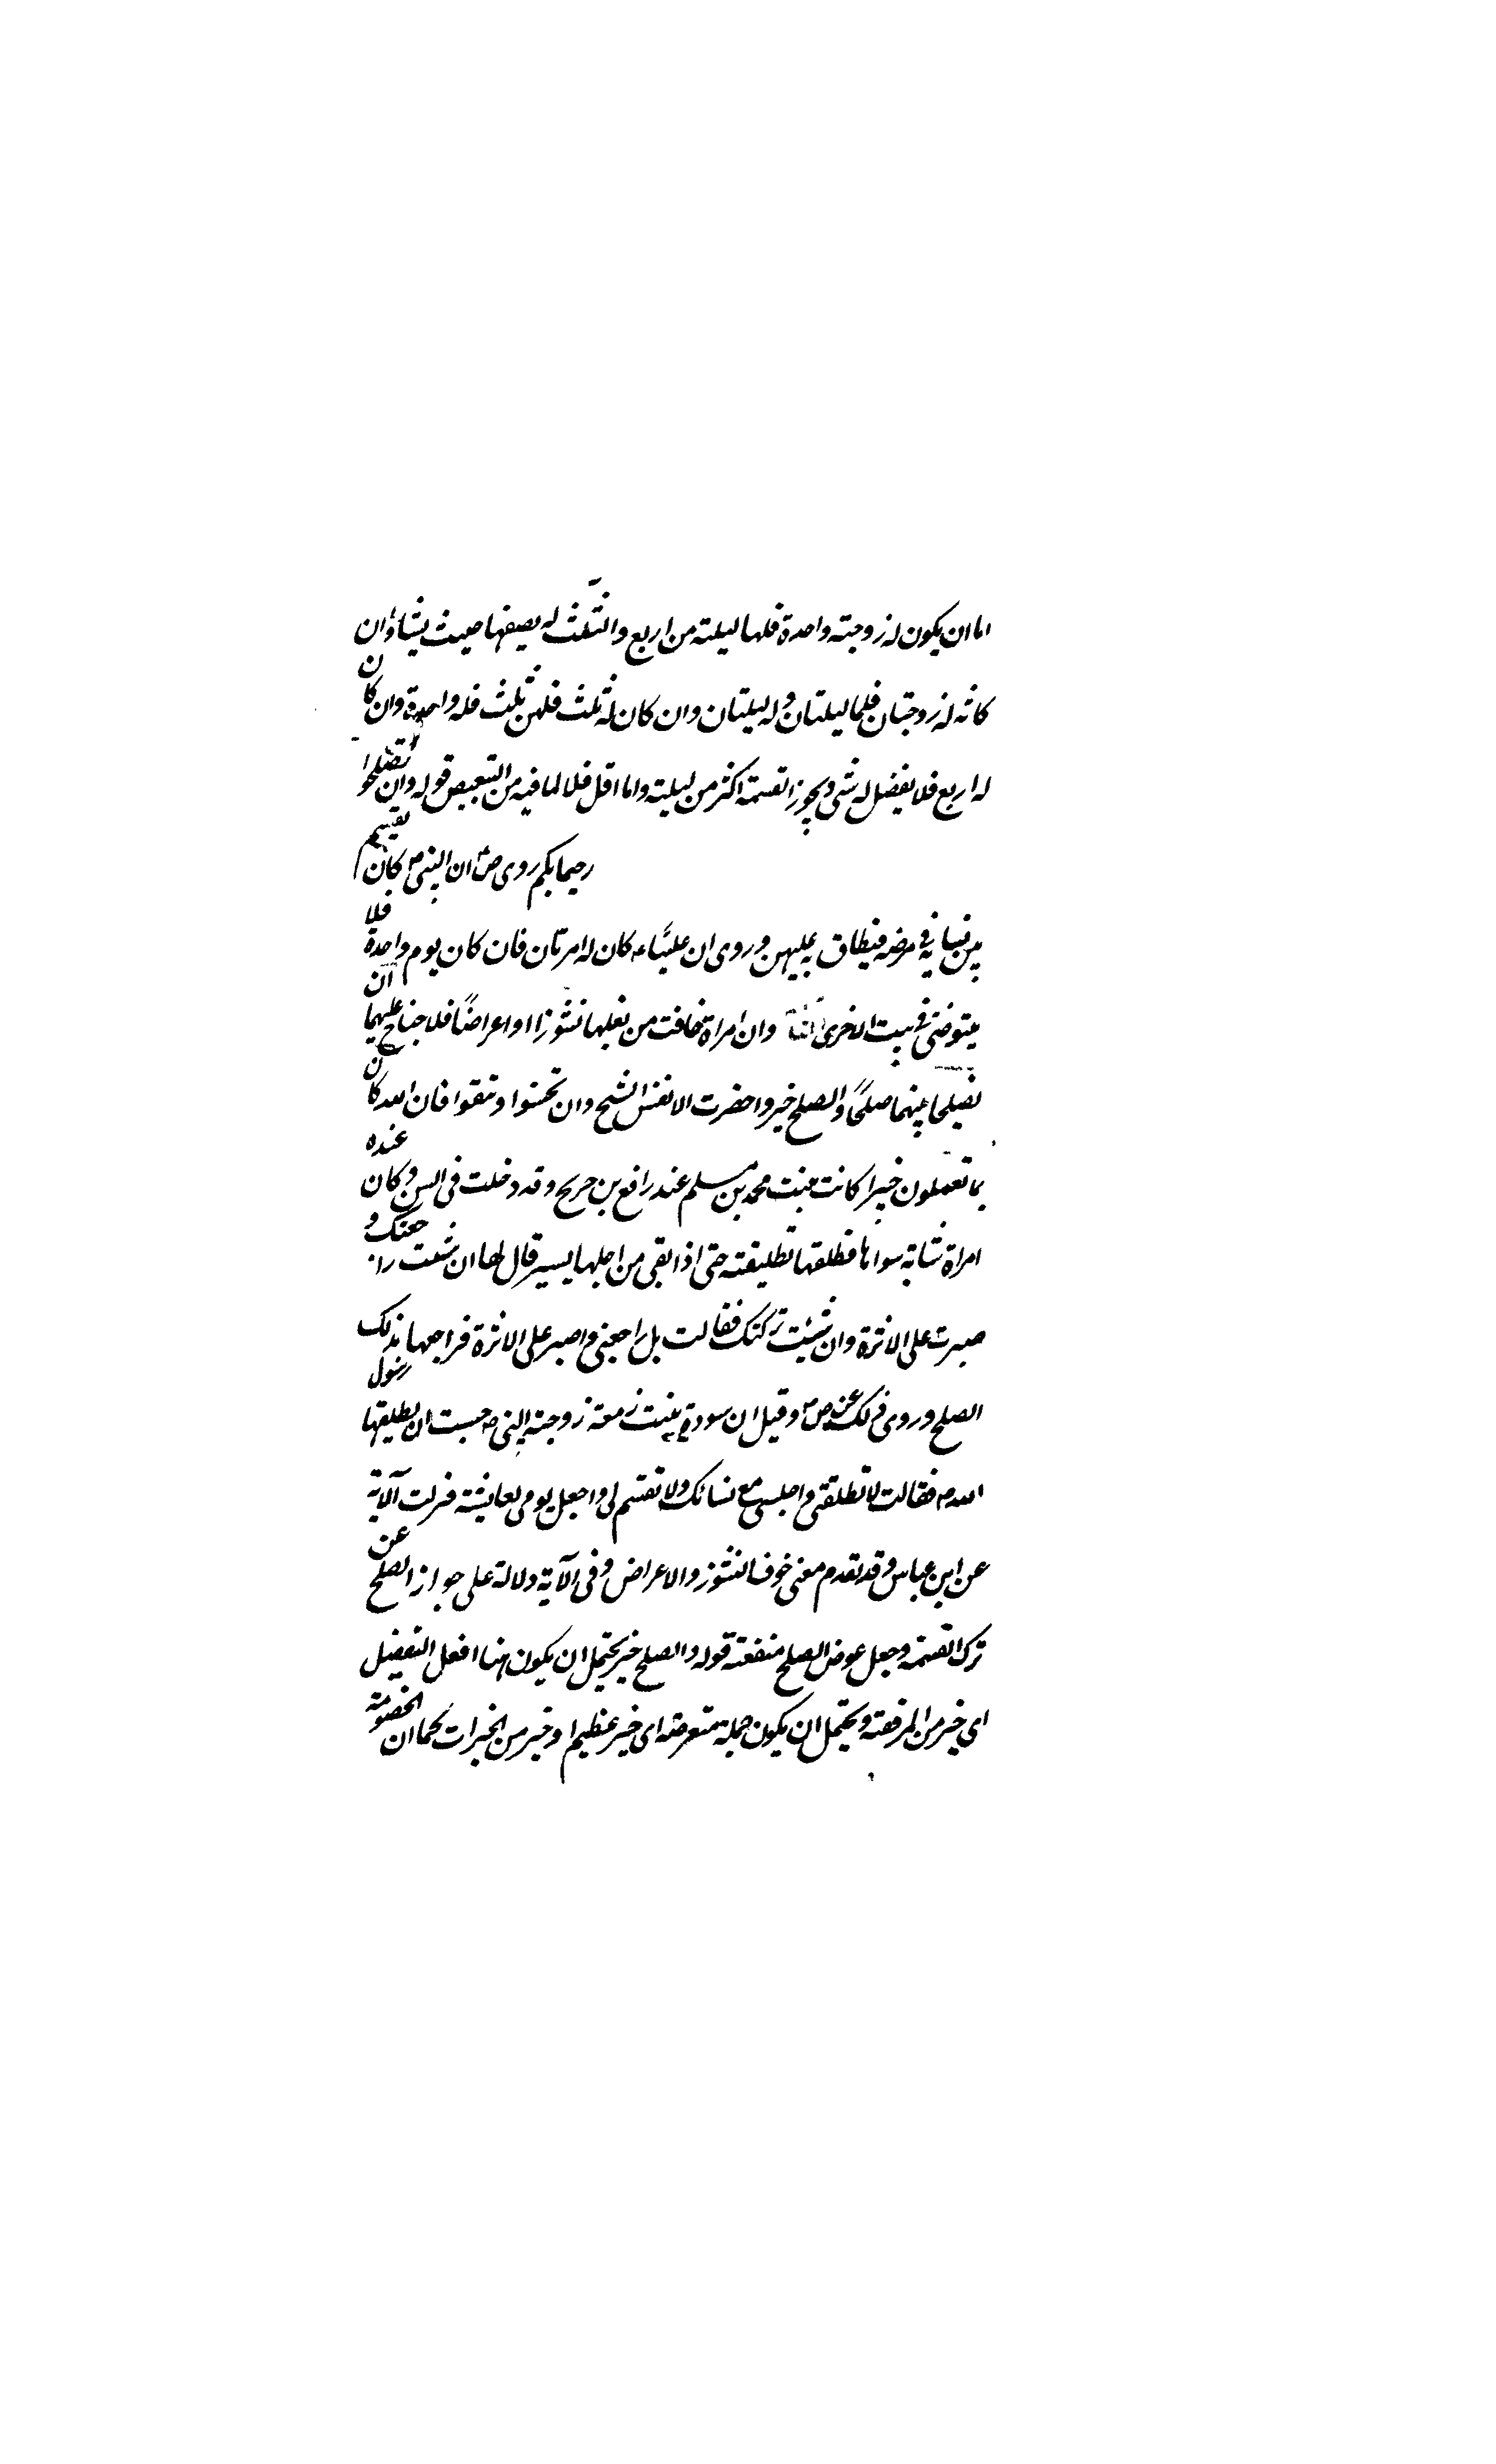 اما ان يكون له زوجته واحدة فلها ليلته من اربع والثلث له يصيفها حيث يشاؤان
كانه له زوجتان فلها ليلتان وله ليلتان وان كان له ثلث فلهن ثلث فله واحدة وان كان
له اربع فلا يفضل له شى ويجوز القسمة اكثر من ليلته واما اقل فلا لما فيه من التبعيض قوله وان تصلحوا
رحيما بكم روى ص ان النبى ص كان يقسم
بين نسايه فى مرضه فيطاق به عليهن وروى ان عليّاء كان له امرتان فان كان يوم واحدة فلا
يتوضى فى بيت الاخرى وان امراة خافت من بعلها نشوزا او اعراضًا فلا جناح عليهما ان
يصلحا بينهما صلحًا والصلح خير واحضرت الانفس الشح وان تحسنوا وتتقوا فان الله كان
بما تعملون خبيرا كانت بنت محمد بن مسلم عند رافع بن جريح وقد دخلت فى السن وكان عنده
امراة شابة سواها فطلقها تطليقته حتى اذا بقى من اجلها يسير قال لها ان شئت راجعتك و
صبرت على الاثرة وان شئت تركتك فقالت بل راجعنى واصبر على الاثرة فراجعها بذلك
الصلح وروى ذلك عن ص وقيل ان سودة بنت زمعة زوجة النبى ص حسبت ان يطليقها رسول
الله ص فقالت لا تطلقنى واجلسى مع نسائك ولا تقسم لى واجعل يومى لعايشة فنزلت الآية
عن ابن عباس وقد تقدم معنى خوف النشوز والاعراض وفى الآية دلالة على جواز الصلح عن
ترك القسمة وجعل عوض الصلح منفعته قوله والصلح خير يحتمل ان يكون هنا افعل التفضيل
اى خير من الفرقته ويحتمل ان يكون جملة معترضة اى خير عظيم او خير من الخيرات كما ان الخصومة